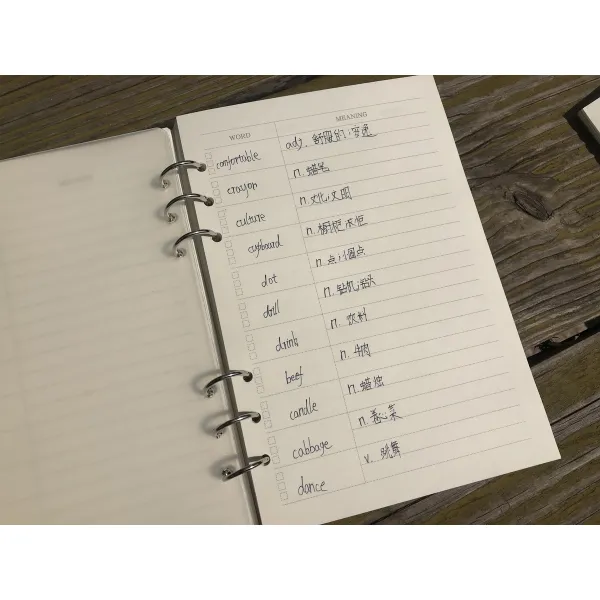 WORD MEANING
comfortable adj. 舒服的;
crayon n. 蜡笔
culture n. 文化;文明
cupboard n. 橱柜;衣柜
dot n. 点;小圆点
drill n. 钻机;钻头
drink n. 饮料
beef n. 牛肉
candle n. 蜡烛
cabbage n. 卷心菜
dance v. 跳舞